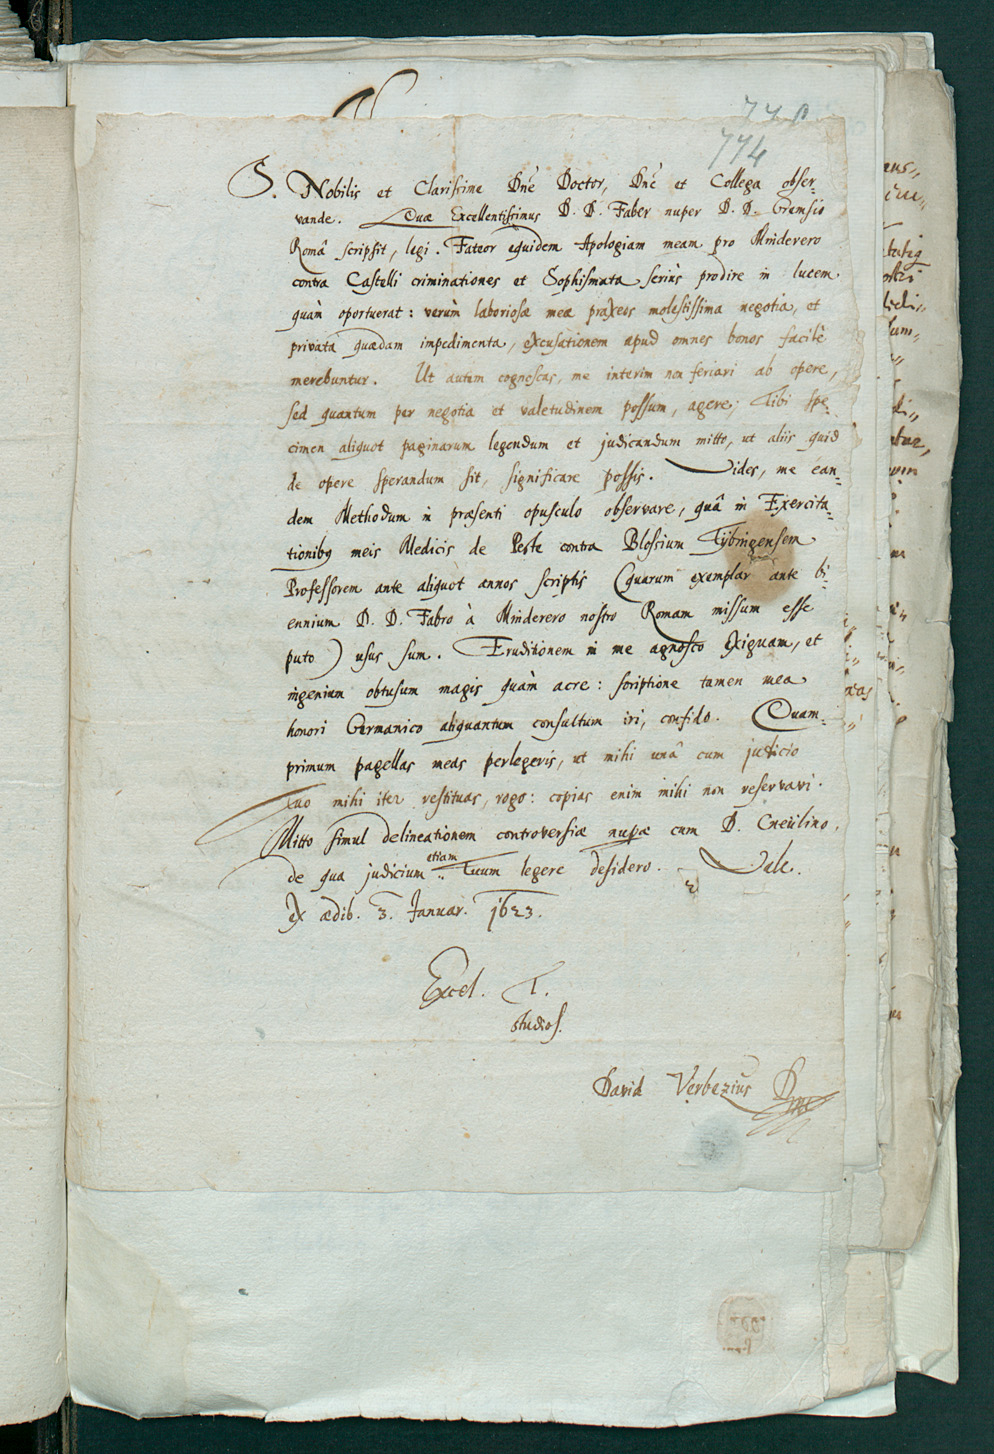 774
S. Nobilis et Clarissime Dne Doctor, Dne et Collega obser-
vande. Quae Excellentissimus D. D. Faber nuper D. D.
Româ scripsit, legi. Fateor equidem Apologiam meam pro Minderero
contra Castelli criminationes et Sophismata seriùs prodire in lucem
quàm oportuerat: verùm laboriosæ meæ praxeos molestissima negotia, et
privata quædam impedimenta, excusationem apud omnes bonos facilè
merebuntur. Ut autem cognoscas, me interim non feriari ab opere,
sed quantum per negotia et valetudinem possum, agere; Tibi spe-
cimen aliquot paginarum legendum et judicandum mitto, ut aliis quid
de opere sperandum sit, significare possis. Vides, me ean-
dem Methodum in præsenti opusculo observare, quâ in Exercita-
tionibq meis Medicis de Peste contra Blossium Tybingensem
Professorem ante aliquot annos scriptis (quarum exemplar ante bi-
ennium D. D. Fabro à Minderero nostro Romam missum esse
puto) usus sum. Eruditionem in me agnosco exiguam, et
ingenium obtusum magis quàm acre: scriptione tamen mea
honori Germanico aliquantum consultum iri, confido. Quam-
primum pagellas meas perlegeris, ut mihi unâ cum judicio
Tuo mihi iter restituas, rogo: copias enim mihi non reservavi.
Mitto simul delineationem controversiæ nupæ cum D. Cneülino,
de qua judicium etiam Tuum legere desidero. Vale.
Ex ædib. 3. Januar. 1623.
Excel. T.
studios.
David Verbezius D